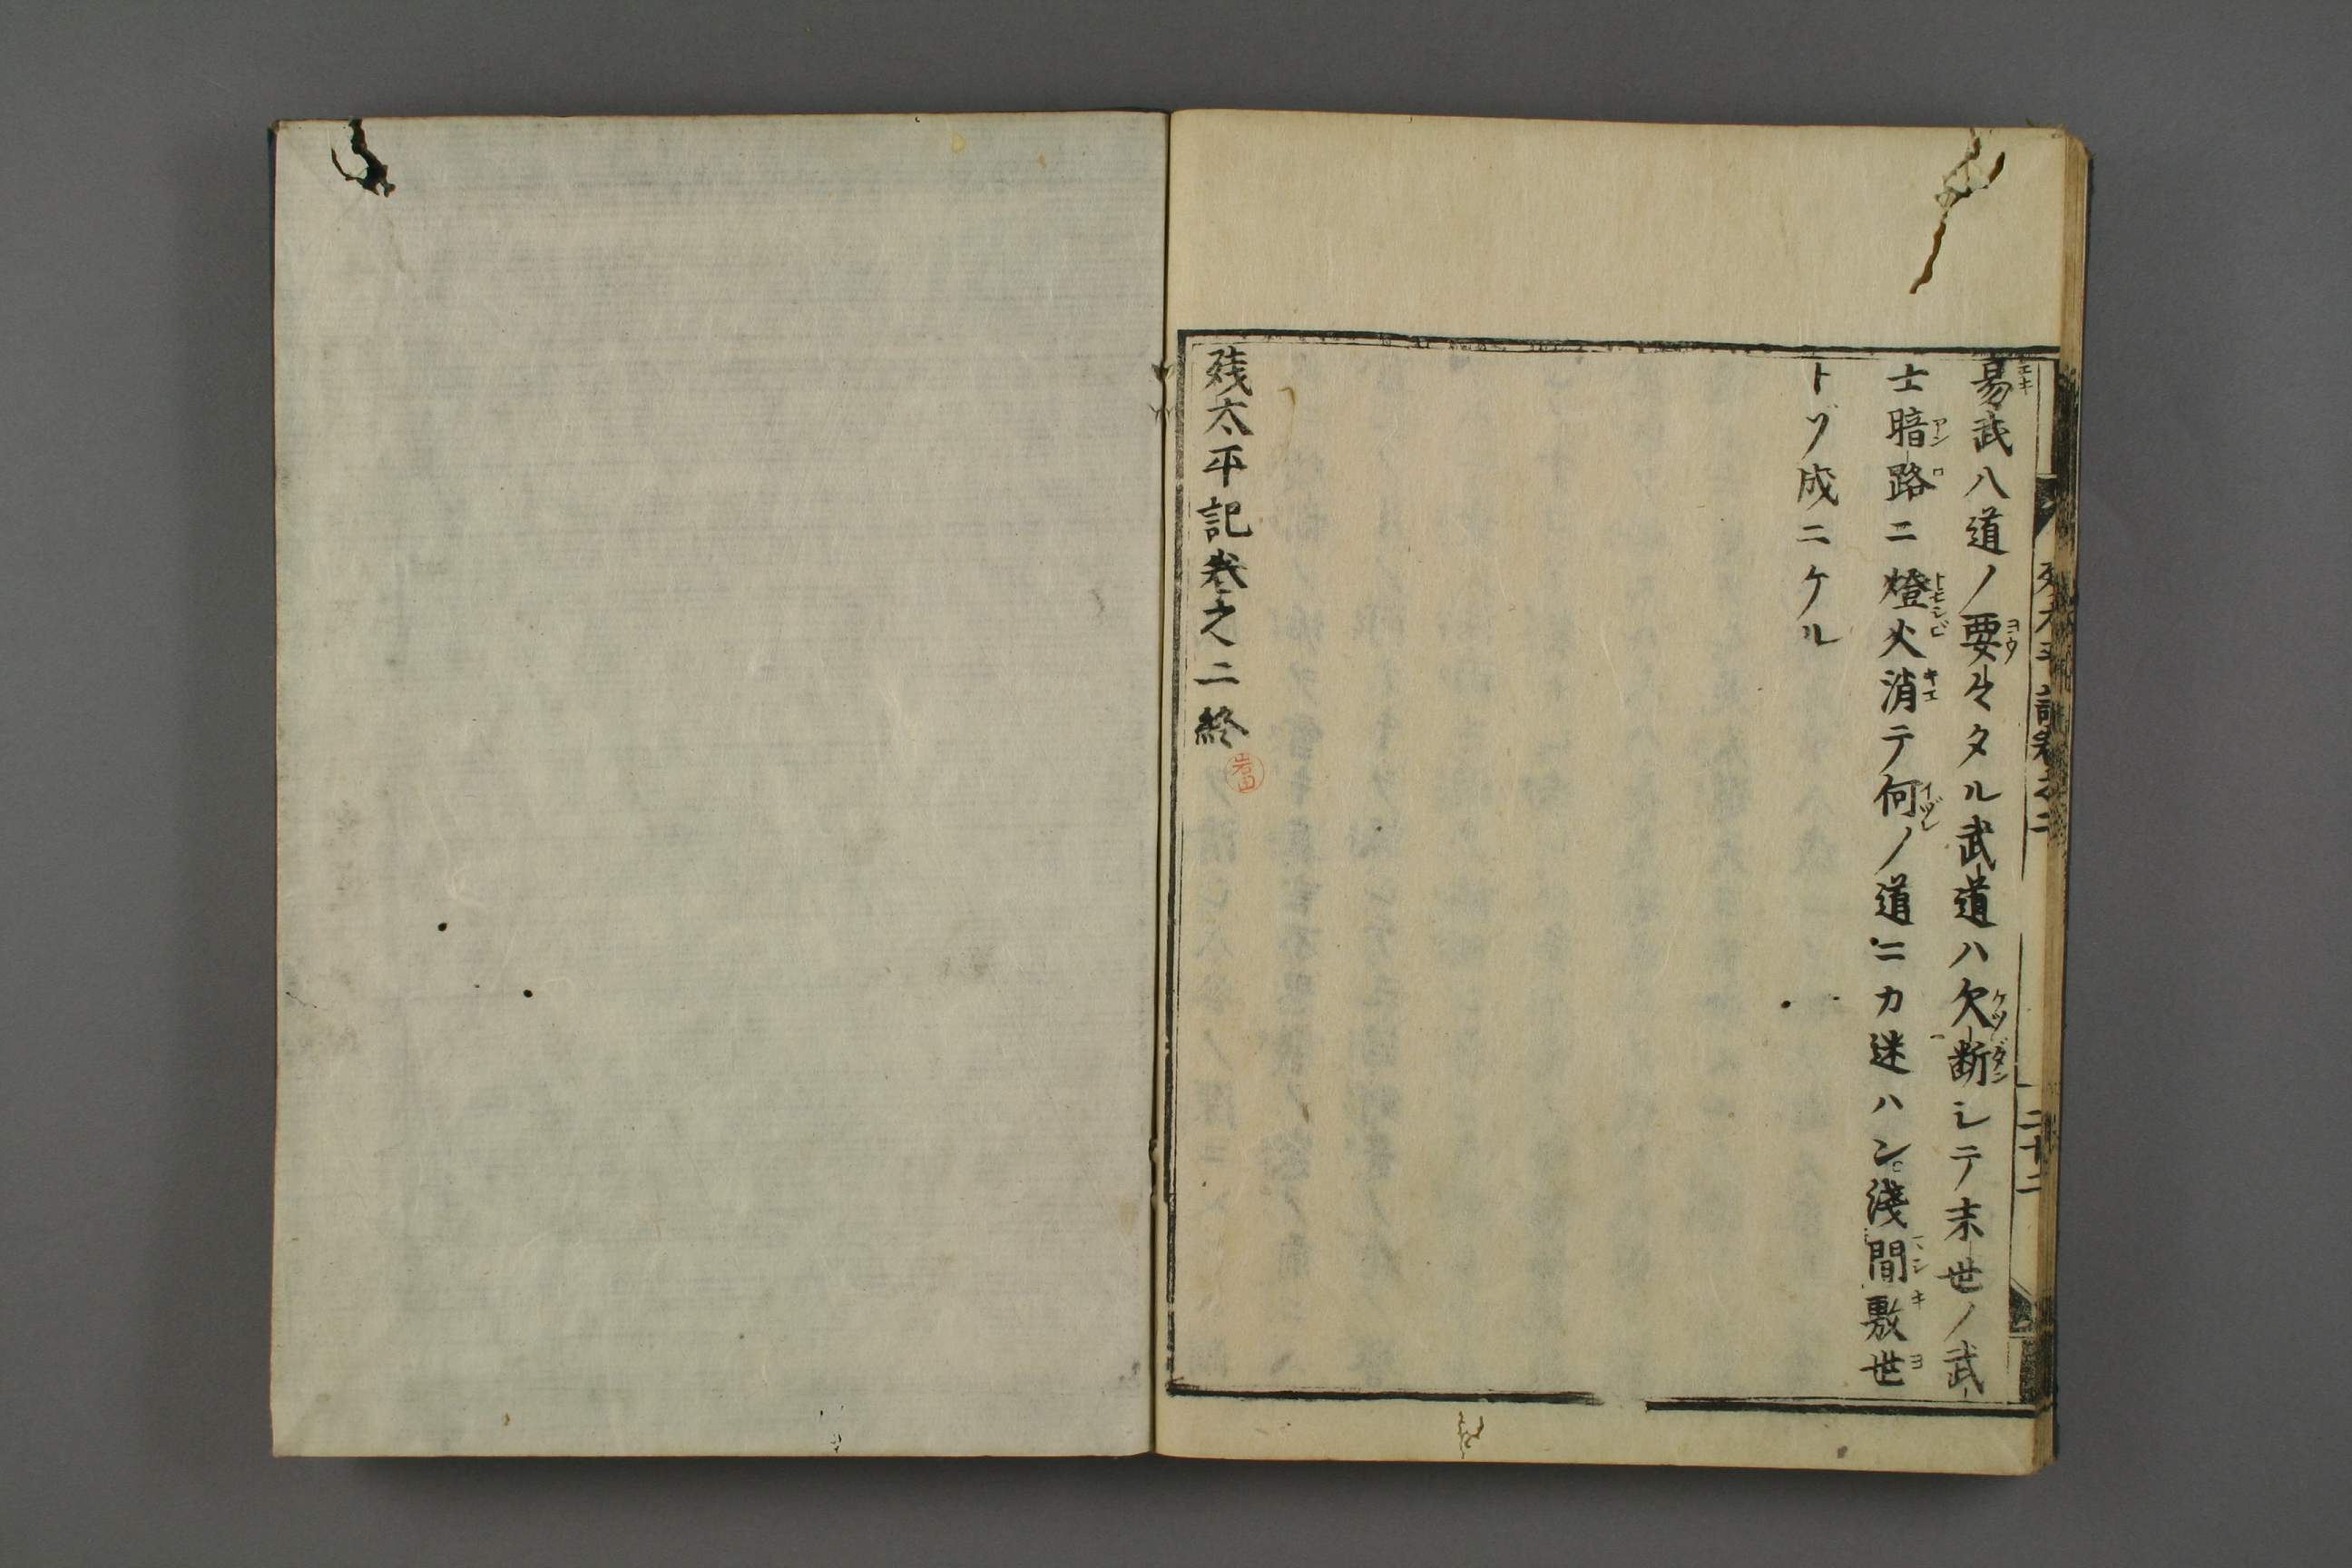 易武八道ノ要々タル武道ハ欠断シテ末世ノ武
士暗路ニ燈火消テ何ノ道ニカ迷ハン浅間敷世
トヅ成ニケル
残太平記巻之二終
残太平記巻之二
二十二